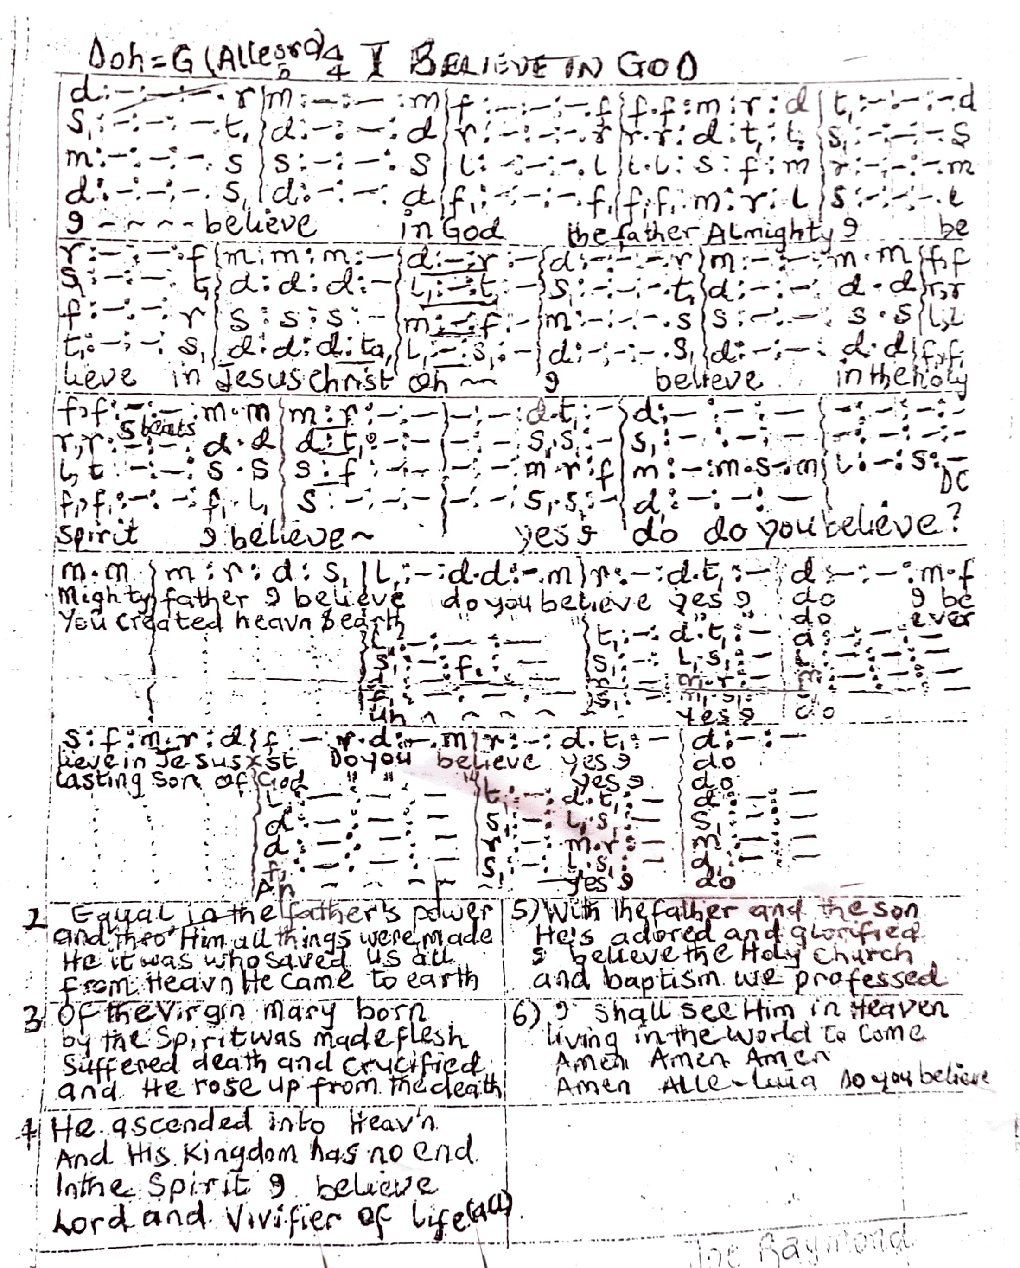 Doh=G (Allegro) 4/4 I BELIEVE IN GOD
d:-:-:-.r|m:-:-:m|f:-:-:-f|f.f:m:r:d|t,:-:-:-d
S,:-:-:-.t,|d:-:-:d|r:-:-:-r|r.r:d:t,:t,|s,:-:-:-S
m:-:-:-.s|s:-:-:s|l:-:-:-l|l.l:s:f:m|r:-:-:-m
d:-:-:-.s,|d:-:-:d|f,:-:-:-f,|f,f,:m:r:l|s:-:-:-l
I - ~ ~ - believe in God the father Almighty I be
r:-:-:-f|m:m:m:-|d:-:r:-|d:-:-:-r|m:-:-:m.m|f,f
S,:-:-:-t,|d:d:d:-|l,:-:t,:-|s,:-:-:-t,|d:-:-:d.d|r,r
f:-:-:r|s:s:s:-|m:-:f:-|m:-:-:-.s|s:-:-:s.s|l,l
t,:-:-:s,|d:d:d.ta,|l,:-:s,:-|d:-:-:-.s,|d:-:-:d.d|f,f,
lieve in Jesus christ oh ~~ I believe in the holy
f,f:-:-:m.m|m:r:-:-|-:-:d.t,:-|d:-:-:-|-:-:-:-
5 beats
r,r:-:-:d.d|d:t,:-:-|-:-:s,s,:-|s,:-:-:-|-:-:-:-
l,l:-:-:s.s|s:f:-:-|-:-:m.r:f|m:-:m.s.m|l:-:s:-
DC
f,f,:-:-:f,.l,|s:-:-:-|-:-:s,s,:-|d,:-:-:-
Spirit I believe ~ yes I do do you believe?
m.m|m:r:d:s,|l,:-:d.d:-.m|r:-:d.t,:-|d:-:-:m.f
Mighty father I believe do you believe yes I do I be
You created heavn & earth " " do ever
t,:-:d.t,:-|d:-:-:-
s,:-:-:f,:-|s,:-:l,s,:-
m.r:-|m:-:-:-
uh ~ ~ ~ ~ ~ yes I do
s:f:m.r:d|f:-:r.d:-.m|r:-:d.t,:-|d:-:-
lieve in Jesus xst Do you believe yes I do
lasting son of God " " " yes I do
l,:-:-:-|t,:-:d.t,:-|d:-:-
d:-:-:-|s,:-:l,s,:-|s,:-:-
d:-:-:-|r:-:m.r:-|m:-:-
f,:-:-:-|s,:-:l,s,:-|d,:-:-
An ~ ~ ~ ~ yes I do
2 Equal in the father's power
and thro' Him all things were made
He it was who saved us all
from Heavn He came to earth
3 Of the Virgin Mary born
by the Spirit was made flesh
Suffered death and crucified
and He rose up from the death
4 He ascended into Heav'n
And His Kingdom has no end
In the Spirit I believe
Lord and Vivifier of life
5) With the father and the son
He's adored and glorified
I believe the Holy Church
and baptism we professed
6) I shall see Him in Heaven
living in the World to come
Amen Amen Amen
Amen Alle-luia Do you believe
Joe Raymond